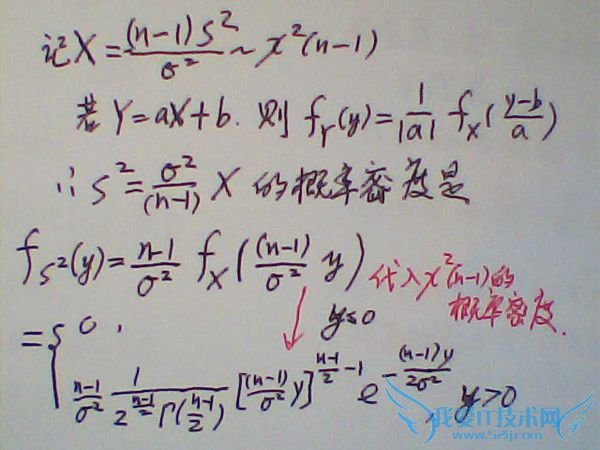 记X=\frac{(n-1)S^2}{σ^2}~χ^2(n-1)
若Y=aX+b.则f_Y(y)=\frac{1}{|a|}f_X(\frac{y-b}{a})
∴S^2=\frac{σ^2}{(n-1)}X的概率密度是
f_{S^2}(y)=\frac{n-1}{σ^2}f_X(\frac{(n-1)}{σ^2}y)
代入χ^2(n-1)的
概率密度.
={0, y≤0
\frac{n-1}{σ^2}\frac{1}{2^{\frac{n-1}{2}}Γ(\frac{n-1}{2})}[\frac{(n-1)}{σ^2}y]^{\frac{n-1}{2}-1}e^{-\frac{(n-1)y}{2σ^2}}, y>0
我爱IT技术网
www.52ij.com